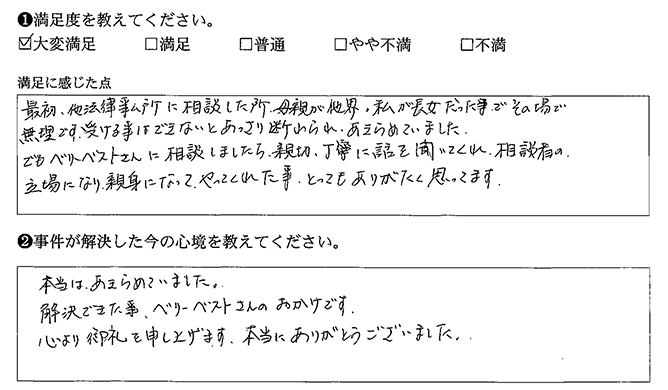 ❶満足度を教えてください。
☑大変満足 □満足 □普通 □やや不満 □不満
満足に感じた点
最初、他法律事ム所に相談した所、母親が他界、私が長女だった事でその場で
無理です。受ける事はできないとあっさり断わられ、あきらめていました。
でもベリーベストさんに相談しましたら、親切、丁寧に話を聞いてくれ、相談者の
立場になり、親身になって、やってくれた事、とってもありがたく思ってます。
❷事件が解決した今の心境を教えてください。
本当は、あきらめていました。
解決できた事、ベリーベストさんのおかげです。
心より御礼を申し上げます。本当にありがとうございました。